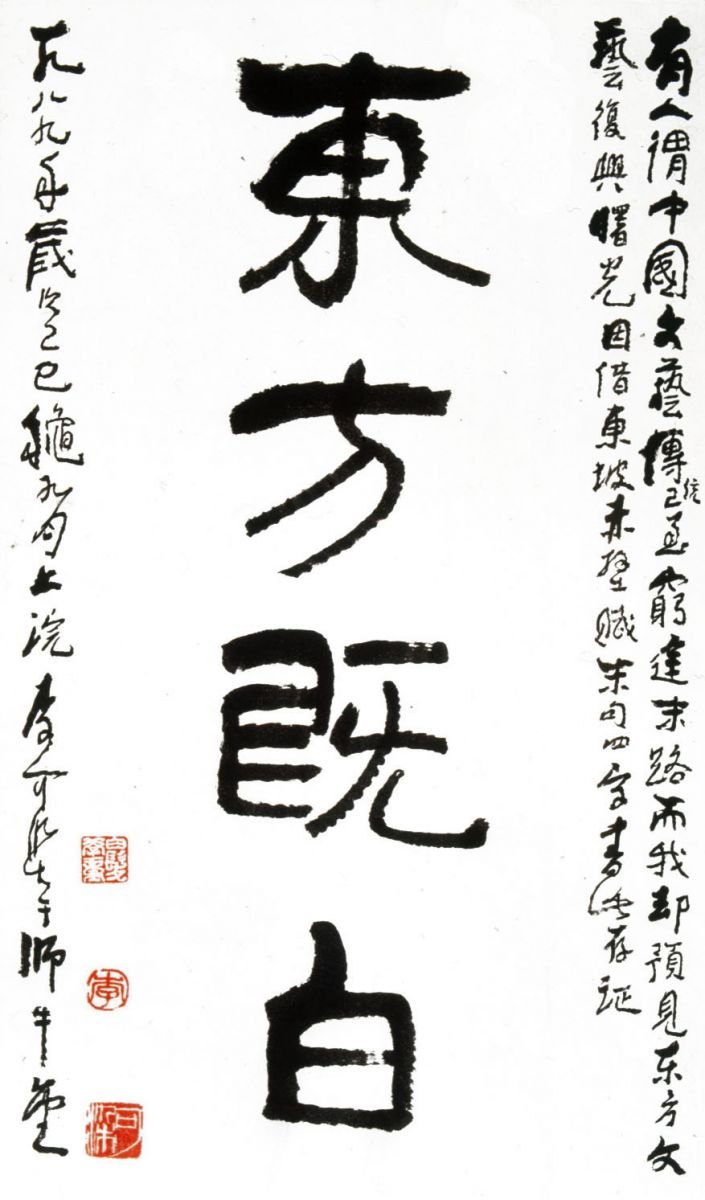 有人謂中國文藝傳統已至窮途末路而我却預見东方文
藝復興曙光因借東坡赤壁賦末句四字書此存証
東方既白
一九八九年歲次己巳龝九月上浣李可染于師牛堂
白髮學童
李
可染